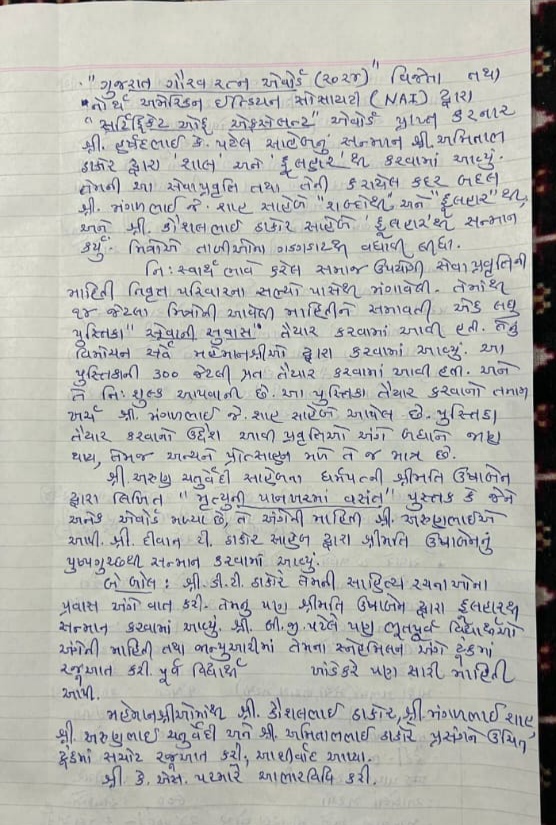 "ગુજરાત ગૌરવ રત્ન એવોર્ડ (૨૦૨૪)" વિજેતા તથા
નોર્થ અમેરિકન ઈન્ડિયન સોસાયટી (NAI) દ્વારા
"સર્ટિફિકેટ ઓફ એક્સેલન્ટ" એવોર્ડ પ્રાપ્ત કરનાર
શ્રી. હર્ષદભાઈ કે. પટેલ સાહેબનું સન્માન શ્રી. અમિતાભ
ઠાકોર દ્વારા 'શાલ' અને 'ફૂલહાર' થી કરવામાં આવ્યું.
તેમની આ સેવાપ્રવૃતિ તથા તેની કરાયેલ કદર બદલ
શ્રી. મંગળભાઈ જે. શાહ સાહેબે "શબ્દોથી અને "ફૂલહાર" થી,
અને શ્રી. કૌશલભાઈ ઠાકોર સાહેબે 'ફૂલહાર' થી સન્માન
કર્યું. મિત્રોએ તાળીઓના ગડગડાટથી વધાવી લીધા.
નિઃસ્વાર્થ ભાવે કરેલ સમાજ ઉપયોગી સેવા પ્રવૃતિની
માહિતી નિવૃત્ત પરિવારના સભ્યો પાસેથી મંગાવેલી. તેમાંથી
૧૪ જેટલા મિત્રોની આવેલી માહિતીને સમાવતી એક લઘુ
પુસ્તિકા "સેવાની સુવાસ" તૈયાર કરવામાં આવી હતી. તેનું
વિમોચન સર્વે મહેમાનશ્રીઓ દ્વારા કરવામાં આવ્યું. આ
પુસ્તિકાની ૩૦૦ જેટલી પ્રત તૈયાર કરવામાં આવી હતી. અને
તે નિઃશુલ્ક આપવાની છે. આ પુસ્તિકા તૈયાર કરવાનો તમામ
ખર્ચ શ્રી. મંગળભાઈ જે. શાહ સાહેબે આપેલ છે. પુસ્તિકા
તૈયાર કરવાનો ઉદ્દેશ આવી પ્રવૃતિઓ અંગે બધાને જાણ
થાય, તેમજ અન્યને પ્રોત્સાહન મળે તે જ માત્ર છે.
શ્રી. અરુણ ચતુર્વેદી સાહેબના ધર્મપત્ની શ્રીમતિ ઉષાબેન
દ્વારા લિખિત "મૃત્યુની પાનખરમાં વસંત" પુસ્તક કે જેને
અનેક એવોર્ડ મળ્યા છે, તે અંગેની માહિતી શ્રી. અરુણભાઈએ
આપી. શ્રી. દીવાન ટી. ઠાકોર સાહેબ દ્વારા શ્રીમતિ ઉષાબેનનું
પુષ્પગુચ્છથી સન્માન કરવામાં આવ્યું.
બે બોલ : શ્રી. ડી. ટી. ઠાકોરે તેમની સાહિત્ય રચનાઓના
પ્રવાસ અંગે વાત કરી. તેમનું પણ શ્રીમતિ ઉષાબેન દ્વારા ફૂલહારથી
સન્માન કરવામાં આવ્યું. શ્રી. બી. જી. પટેલે પણ ભૂતપૂર્વ વિદ્યાર્થીઓ
અંગેની માહિતી તથા જાન્યુઆરીમાં તેમના સ્નેહમિલન અંગે ટૂંકમાં
રજૂઆત કરી. પૂર્વ વિદ્યાર્થી ખાંડેકરે પણ સારી માહિતી
આપી.
મહેમાનશ્રીઓમાંથી શ્રી. કૌશલભાઈ ઠાકોર, શ્રી. મંગળભાઈ શાહ,
શ્રી. અરુણભાઈ ચતુર્વેદી અને શ્રી. અમિતાભભાઈ ઠાકોરે પ્રસંગને ઉચિત
ટૂંકમાં સચોટ રજૂઆત કરી, આશીર્વાદ આપ્યા.
શ્રી. કે. એસ. પરમારે આભારવિધિ કરી.